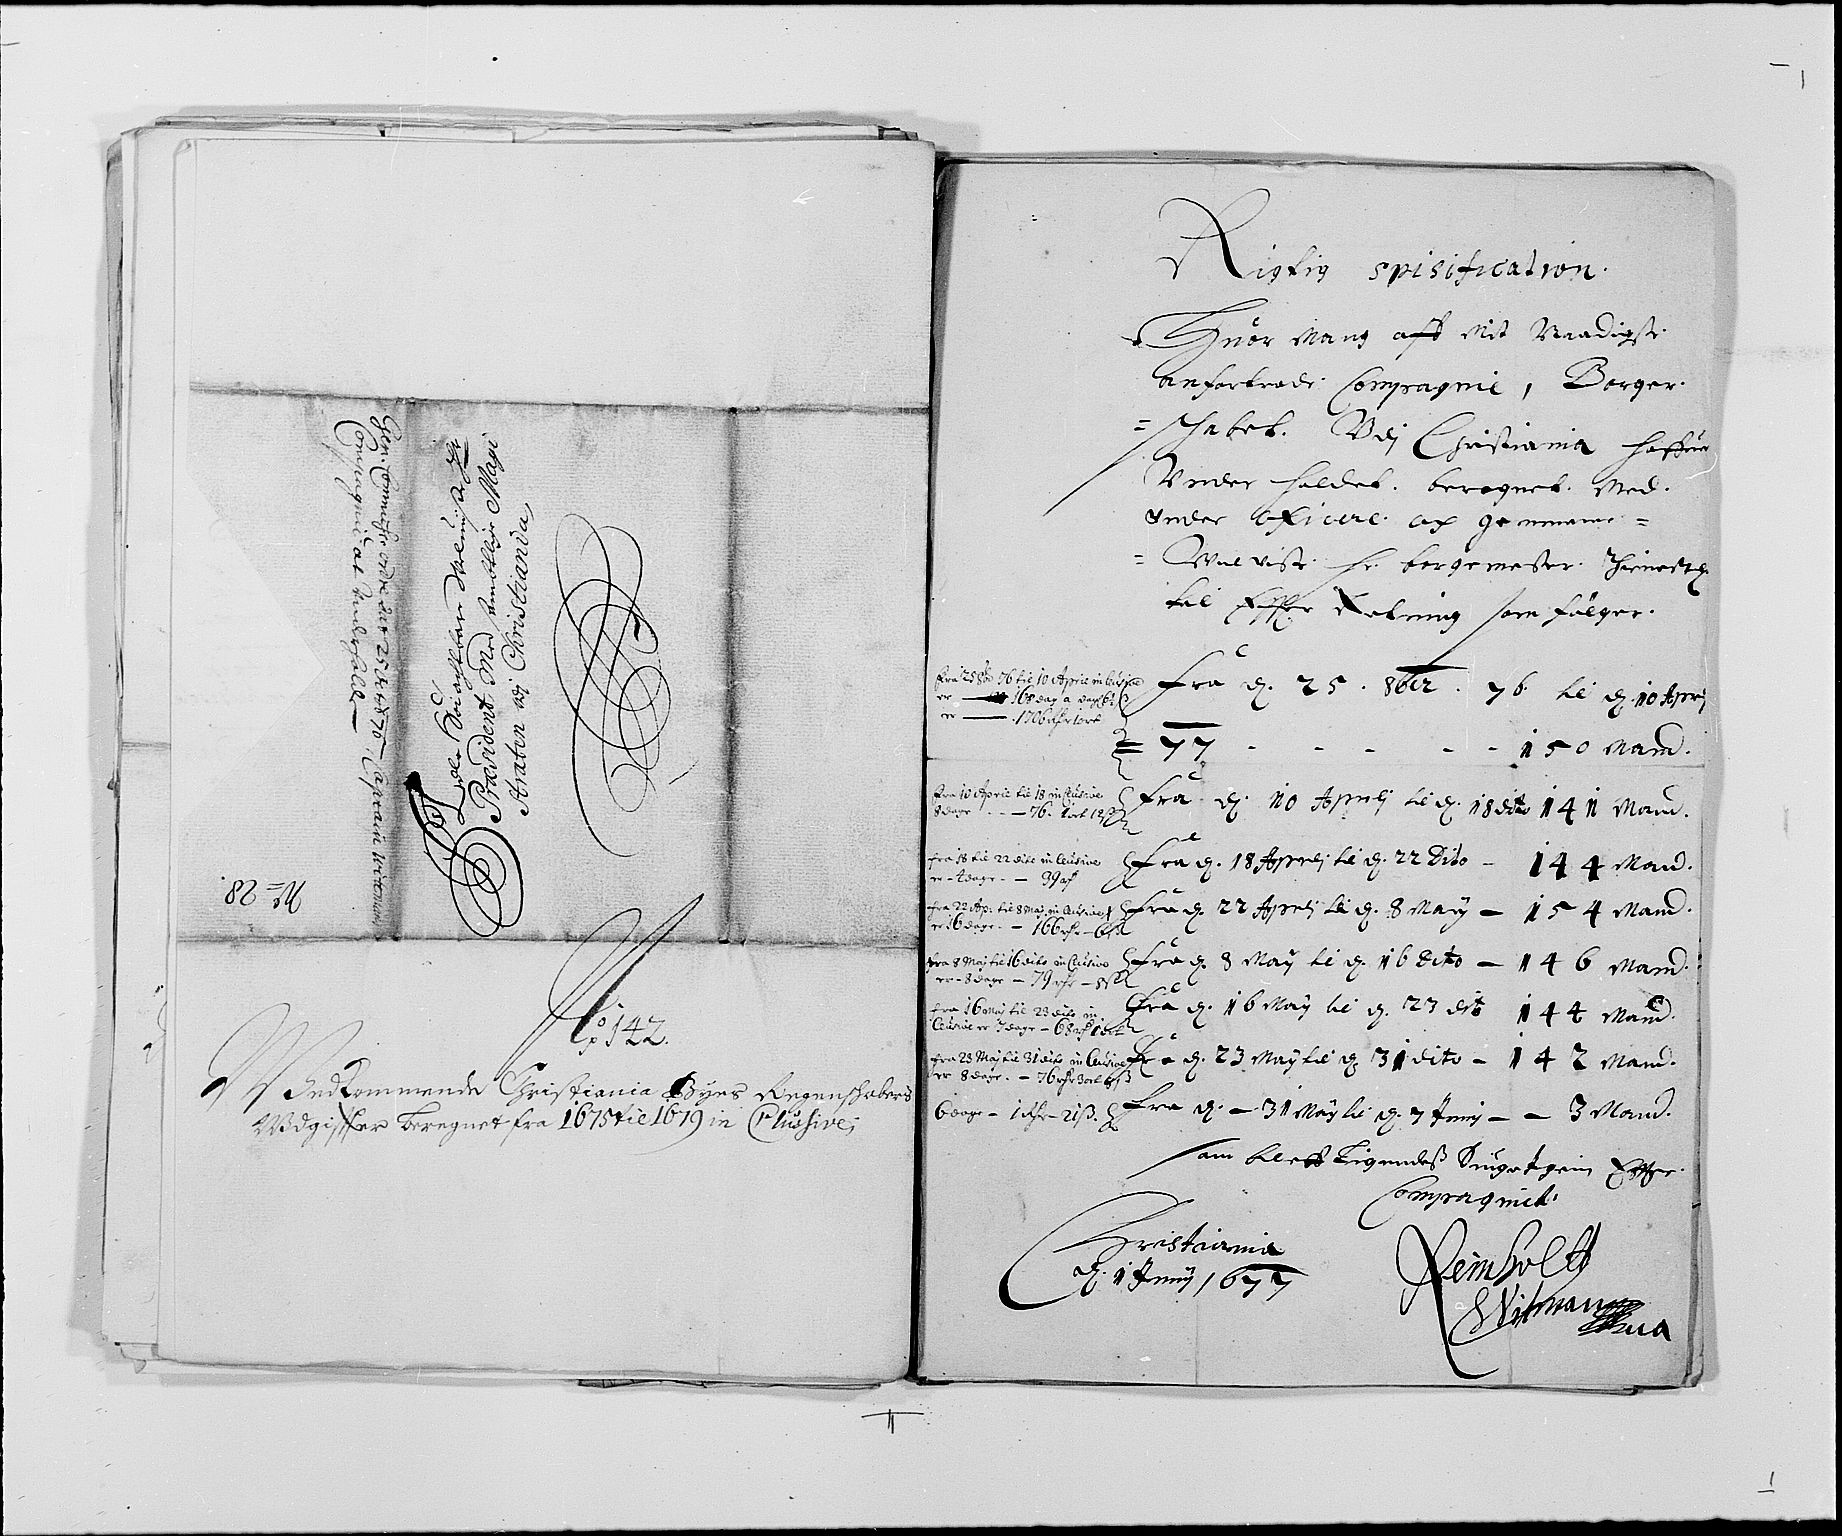 Gen: Commiss: ordre dat: 25 1676. Capitain Witman
Compagnie at Underholde
Edle Velachtbar Velwise
Præsident Med samptlige Magi
straten udj Christiania
No 28.
No 142.
Vedkommende Christiania Byes Regenskabers
Udgiffter beregnet fra 1675 til 1679 in Clusive;
Rigtig spisification.
Huor Mang aff Mit Naadigste
anfortrode Compagnie, Borger
=schabet. Udj Christiania haffuer
Under holdet. beregnet. Med.
Under oficere. og gemmene =
hr. borgemester.
til Effter Retning som følger.
fra 25 8br 76 til 10 Aprill in Clusive
er 168 dag
er 1706
Fra d. 25. 8ber. 76. til d. 10 Aprilj
= 77 - - - - - 150 Mand.
fra 10 Aprill til 18 in Clusive
8 dage - - - 76. ort 12 ß
Fra d. 10 Aprilj til d. 18 dito 141 Mand.
fra 18 til 22 dito in Clusive
er - 4 dage - - 39
Fra d. 18 Aprilj til d. 22 Dito - 144 Mand.
fra 22 Apr: til 8 Maj in Clusive
er 16 dage. - 166
Fra d. 22 Aprilj til d. 8 Maÿ - 154 Mand.
fra 8 Maj til 16 dito in Clusive
er - 8 dage - 79
Fra d. 8 Maÿ til d. 16 dito - 146 Mand.
fra 16 Maj til 23 dito in
Clusive er 7 dage - 68
Fra d. 16 Maÿ til d. 23 dito 144 Mand.
fra 23 Maj til 31 dito in Clusive
er 8 dage. - 76
Fra d. 23 Maÿ til d. 31 dito - 142 Mand.
6 dage - 1 - 21 ß.
Fra d. - 31 Maÿ til d. 7 Junij - - 3 Mand.
som bleff Effter
Compagniet.
Christiania
d. 1 Junij 1677
Reinholtt
Witman